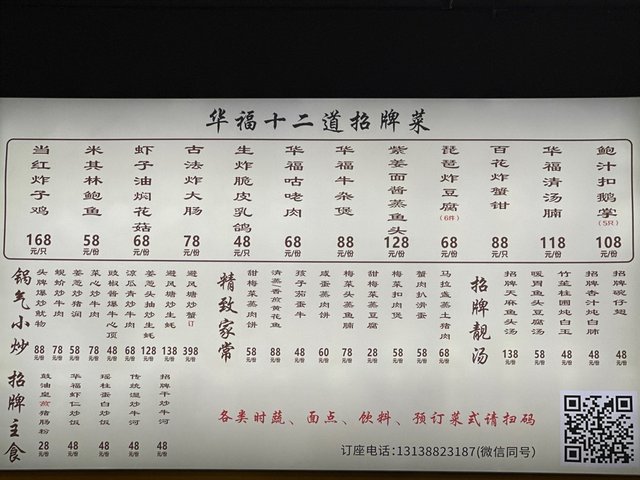 华福十二道招牌菜
当红炸子鸡 168元/只
米其林鲍鱼 58元/份
虾子油焖花菇 68元/份
古法炸大肠 78元/份
生炸脆皮乳鸽 48元/只
华福咕咾肉 68元/份
华福牛杂煲 88元/份
紫姜面酱蒸鱼头 128元/份
琵琶炸豆腐(6件) 68元/份
百花炸蟹钳 88元/只
华福清汤腩 118元/份
鲍汁扣鹅掌(5只) 108元/份
锅气小炒
头牌爆炒鱿物 88元/份
蚬蚧炒牛肉 78元/份
姜葱炒猪润 58元/份
菜心炒牛肉 78元/份
豉椒酱爆牛心顶 48元/份
凉瓜炒牛肉 68元/份
姜葱头抽炒生蚝 128元/份
避风塘炒生蚝 138元/份
避风塘炒蟹(订) 398元/份
精致家常
甜梅菜蒸肉饼 58元/份
清蒸香煎黄花鱼 88元/份
孩子茄蛋牛 48元/份
咸蛋蒸肉饼 60元/份
梅菜头蒸鱼腩 78元/份
甜梅菜蒸豆腐 28元/份
梅菜扣肉煲 58元/份
蟹肉扒滑蛋 58元/份
马拉盏蒸土猪肉 68元/份
招牌靓汤
招牌天麻鱼头汤 138元/份
暖胃鱼头豆腐汤 58元/份
竹荪柱圆炖白玉 48元/份
招牌杏汁炖白肺 48元/份
招牌碗仔翅 48元/份
招牌主食
鼓油皇煎猪肠粉 28元/份
华福虾仁炒饭 48元/份
瑶柱蛋白炒饭 48元/份
传统湿炒牛河 48元/份
招牌干炒牛河 48元/份
各类时蔬、面点、饮料、预订菜式请扫码
订座电话:13138823187(微信同号)